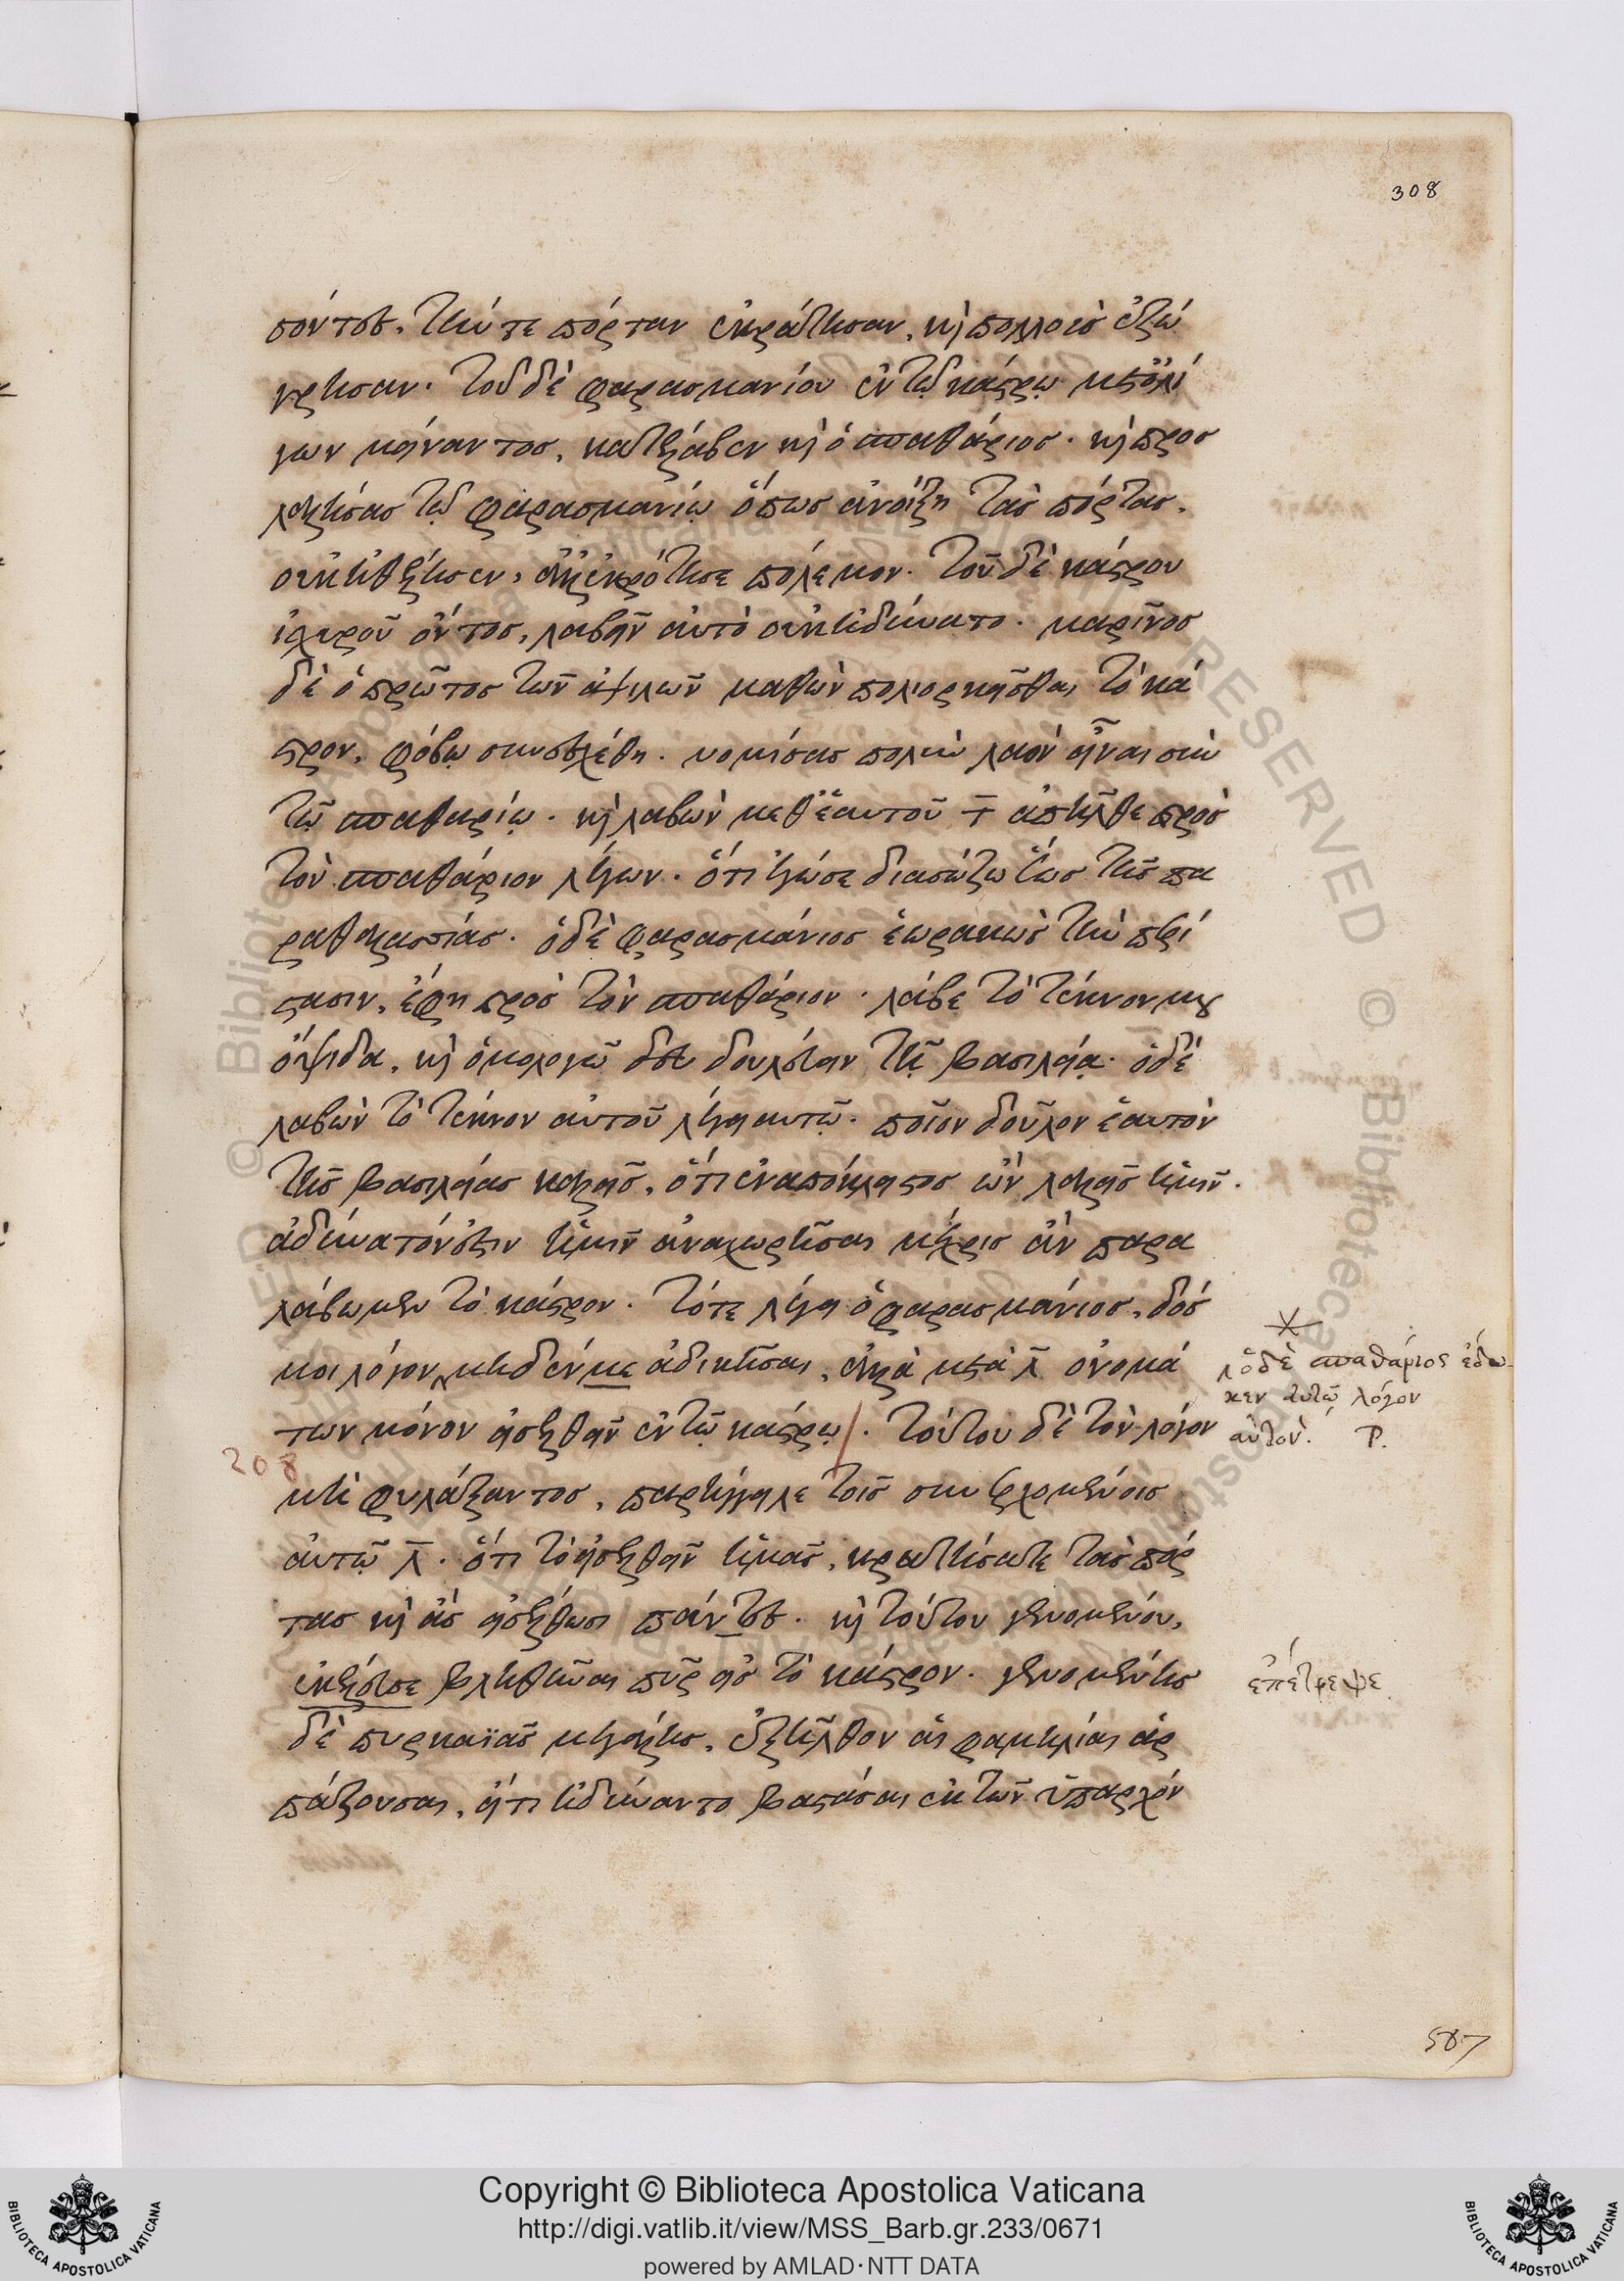 308
σόντες, τήν τε πόρταν ἐκράτησαν, καὶ πολλοὺς ἐζώ
γρησαν. τοῦ δὲ φαρασμανίου ἐν τῷ κάστρῳ μετ' ὀλί
γων μείναντος, κατέλαβεν καὶ ὁ σπαθάριος. καὶ προσ
λαλήσας τῷ φαρασμανίῳ ὅπως ἀνοίξῃ τὰς πόρτας,
οὐκ ἠθέλησεν, ἀλλ' ἐκρότησε πόλεμον. τοῦ δὲ κάστρου
ἰσχυροῦ ὄντος, λαβεῖν αὐτὸ οὐκ ἠδύνατο. μαρῖνος
δὲ ὁ πρῶτος τῶν ἀψιλῶν μαθὼν πολιορκεῖσθαι τὸ κά
στρον, φόβῳ συνεσχέθη. νομίσας πολὺν λαὸν εἶναι σὺν
τῷ σπαθαρίῳ. καὶ λαβὼν μεθ' ἑαυτοῦ τ̅ ἀπῆλθε πρὸς
τὸν σπαθάριον λέγων. ὅτι ἐγώ σε διασώζω ἕως τῆς πα
ραθαλασσίας. ὁ δὲ φαρασμάνιος ἑωρακὼς τὴν περί
στασιν, ἔφη πρὸς τὸν σπαθάριον. λάβε τὸ τέκνον μου
ὄψιδα, καὶ ὁμολογῶ δουλεύειν τῇ βασιλείᾳ. ὁ δὲ
λαβὼν τὸ τέκνον αὐτοῦ λέγει αὐτῷ. ποῖον δοῦλον ἑαυτὸν
τῆς βασιλείας καλεῖς, ὅτι ἐναπόκλειστος ὢν λαλεῖς ἡμῖν.
ἀδύνατόν ἐστιν ἡμῖν ἀναχωρῆσαι μέχρις ἂν παρα
λάβωμεν τὸ κάστρον. τότε λέγει ὁ φαρασμάνιος, δός
μοι λόγον μηδέν με ἀδικῆσαι, ἀλλὰ μετὰ λ̅ ὀνομά
των μόνον εἰσελθεῖν ἐν τῷ κάστρῳ. τούτου δὲ τὸν λόγον
μὴ φυλάξαντος, παρήγγειλε τοῖς συνερχομένοις
αὐτῷ λ̅. ὅτι τὸ εἰσελθεῖν ἡμᾶς, κρατήσατε τὰς πόρ
τας καὶ ἂς εἰσέλθωσι πάντες. καὶ τούτου γενομένου,
ἐκέλευσε βληθῆναι πῦρ εἰς τὸ κάστρον. γενομένης
δὲ πυρκαϊᾶς μεγάλης, ἐξῆλθον αἱ φαμηλίαι ἁρ
πάζουσαι, εἴ τι ἠδύναντο βαστάσαι ἐκ τῶν ὑπαρχόν
ὁ δὲ σπαθάριος ἔδω-
κεν αὐτῷ λόγον
αὐτόν. P.
208
ἐπέτρεψε
587
Copyright © Biblioteca Apostolica Vaticana
http://digi.vatlib.it/view/MSS_Barb.gr.233/0671
powered by AMLAD·NTT DATA
BIBLIOTECA APOSTOLICA VATICANA
BIBLIOTECA APOSTOLICA VATICANA